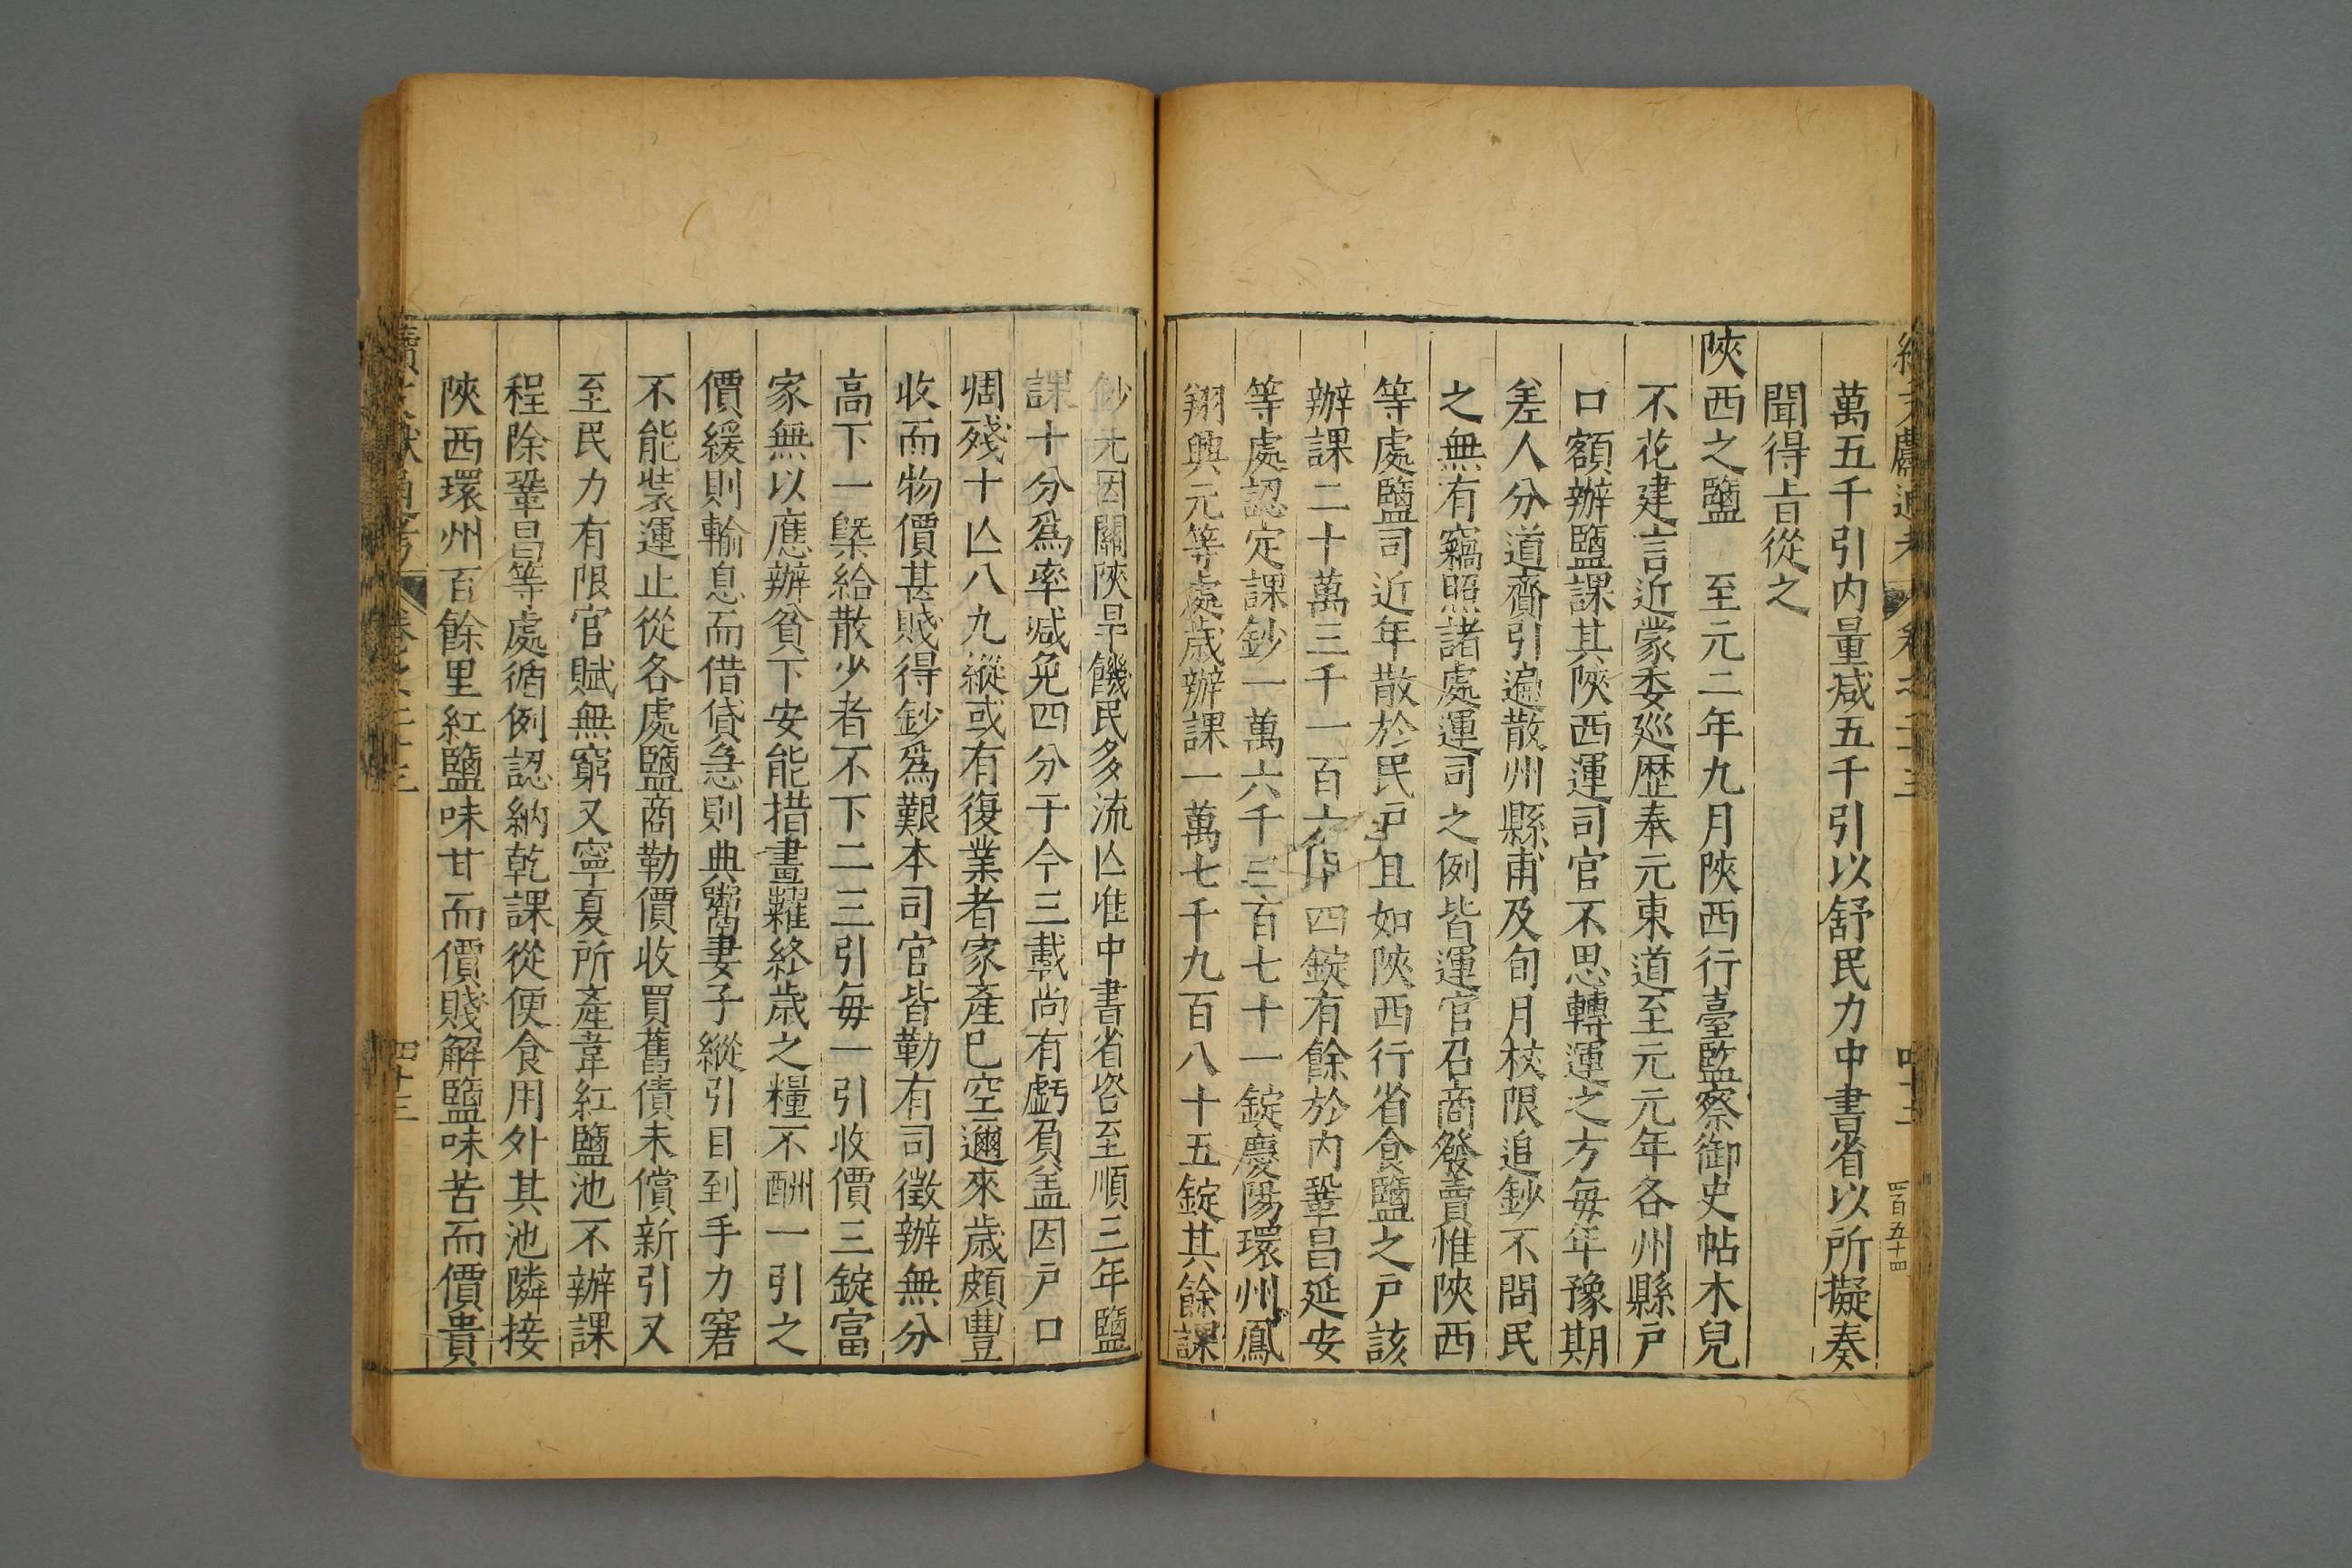 萬五千引内量减五千引以舒民力中書省以所擬奏
聞得旨從之
陜西之鹽　至元二年九月陜西行臺監察御史帖木兒
不花建言近蒙委廵歷奉元東道至元元年各州縣戸
口額辦鹽課其陜西運司官不思轉運之方每年豫期
差人分道齎引遍散州縣甫及旬月校限追鈔不問民
之無有竊照諸處運司之例皆運官召商發賣惟陜西
等處鹽司近年散於民戸且如陜西行省食鹽之戸該
辦課二十萬三千一百六十四錠有餘於内鞏昌延安
等處認定課鈔一萬六千三百七十一錠慶陽環州鳳
翔興元等處歲辦課一萬七千九百八十五錠其餘課
鈔先因關陜旱饑民多流亾准中書省咨至順三年鹽
課十分爲率减免四分于今三載尚有虧負盖因戸口
凋殘十亾八九縱或有復業者家產已空邇來歲頗豐
收而物價甚賤得鈔爲艱本司官皆勒有司徵辦無分
高下一槩給散少者不下二三引每一引收價三錠富
家無以應辦貧下安能措畫糶終歲之糧不酬一引之
價緩則輸息而借貸急則典鬻妻子縱引目到手力窘
不能裝運止從各處鹽商勒價收買舊債未償新引又
至民力有限官賦無窮又寧夏所產韋紅鹽池不辦課
程除鞏昌等處循例認納乾課從便食用外其池隣接
陜西環州百餘里紅鹽味甘而價賤解鹽味苦而價貴
續文獻通考　卷之二十三
四十三
四百五十四